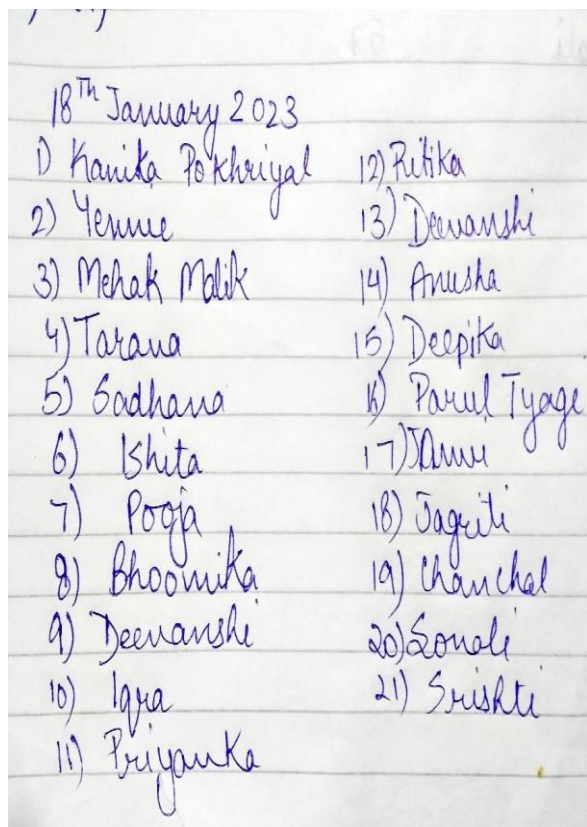 18Th January 2023
1) Kanika Pokhriyal
2) Yennue
3) Mehak Malik
4) Tarana
5) Sadhana
6) Ishita
7) Pooja
8) Bhoomika
9) Deevanshi
10) Iqra
11) Priyanka
12) Ritika
13) Deevanshi
14) Anusha
15) Deepika
16) Parul Tyage
17)
18) Jagriti
19) Chanchal
20) Sonali
21) Srishti